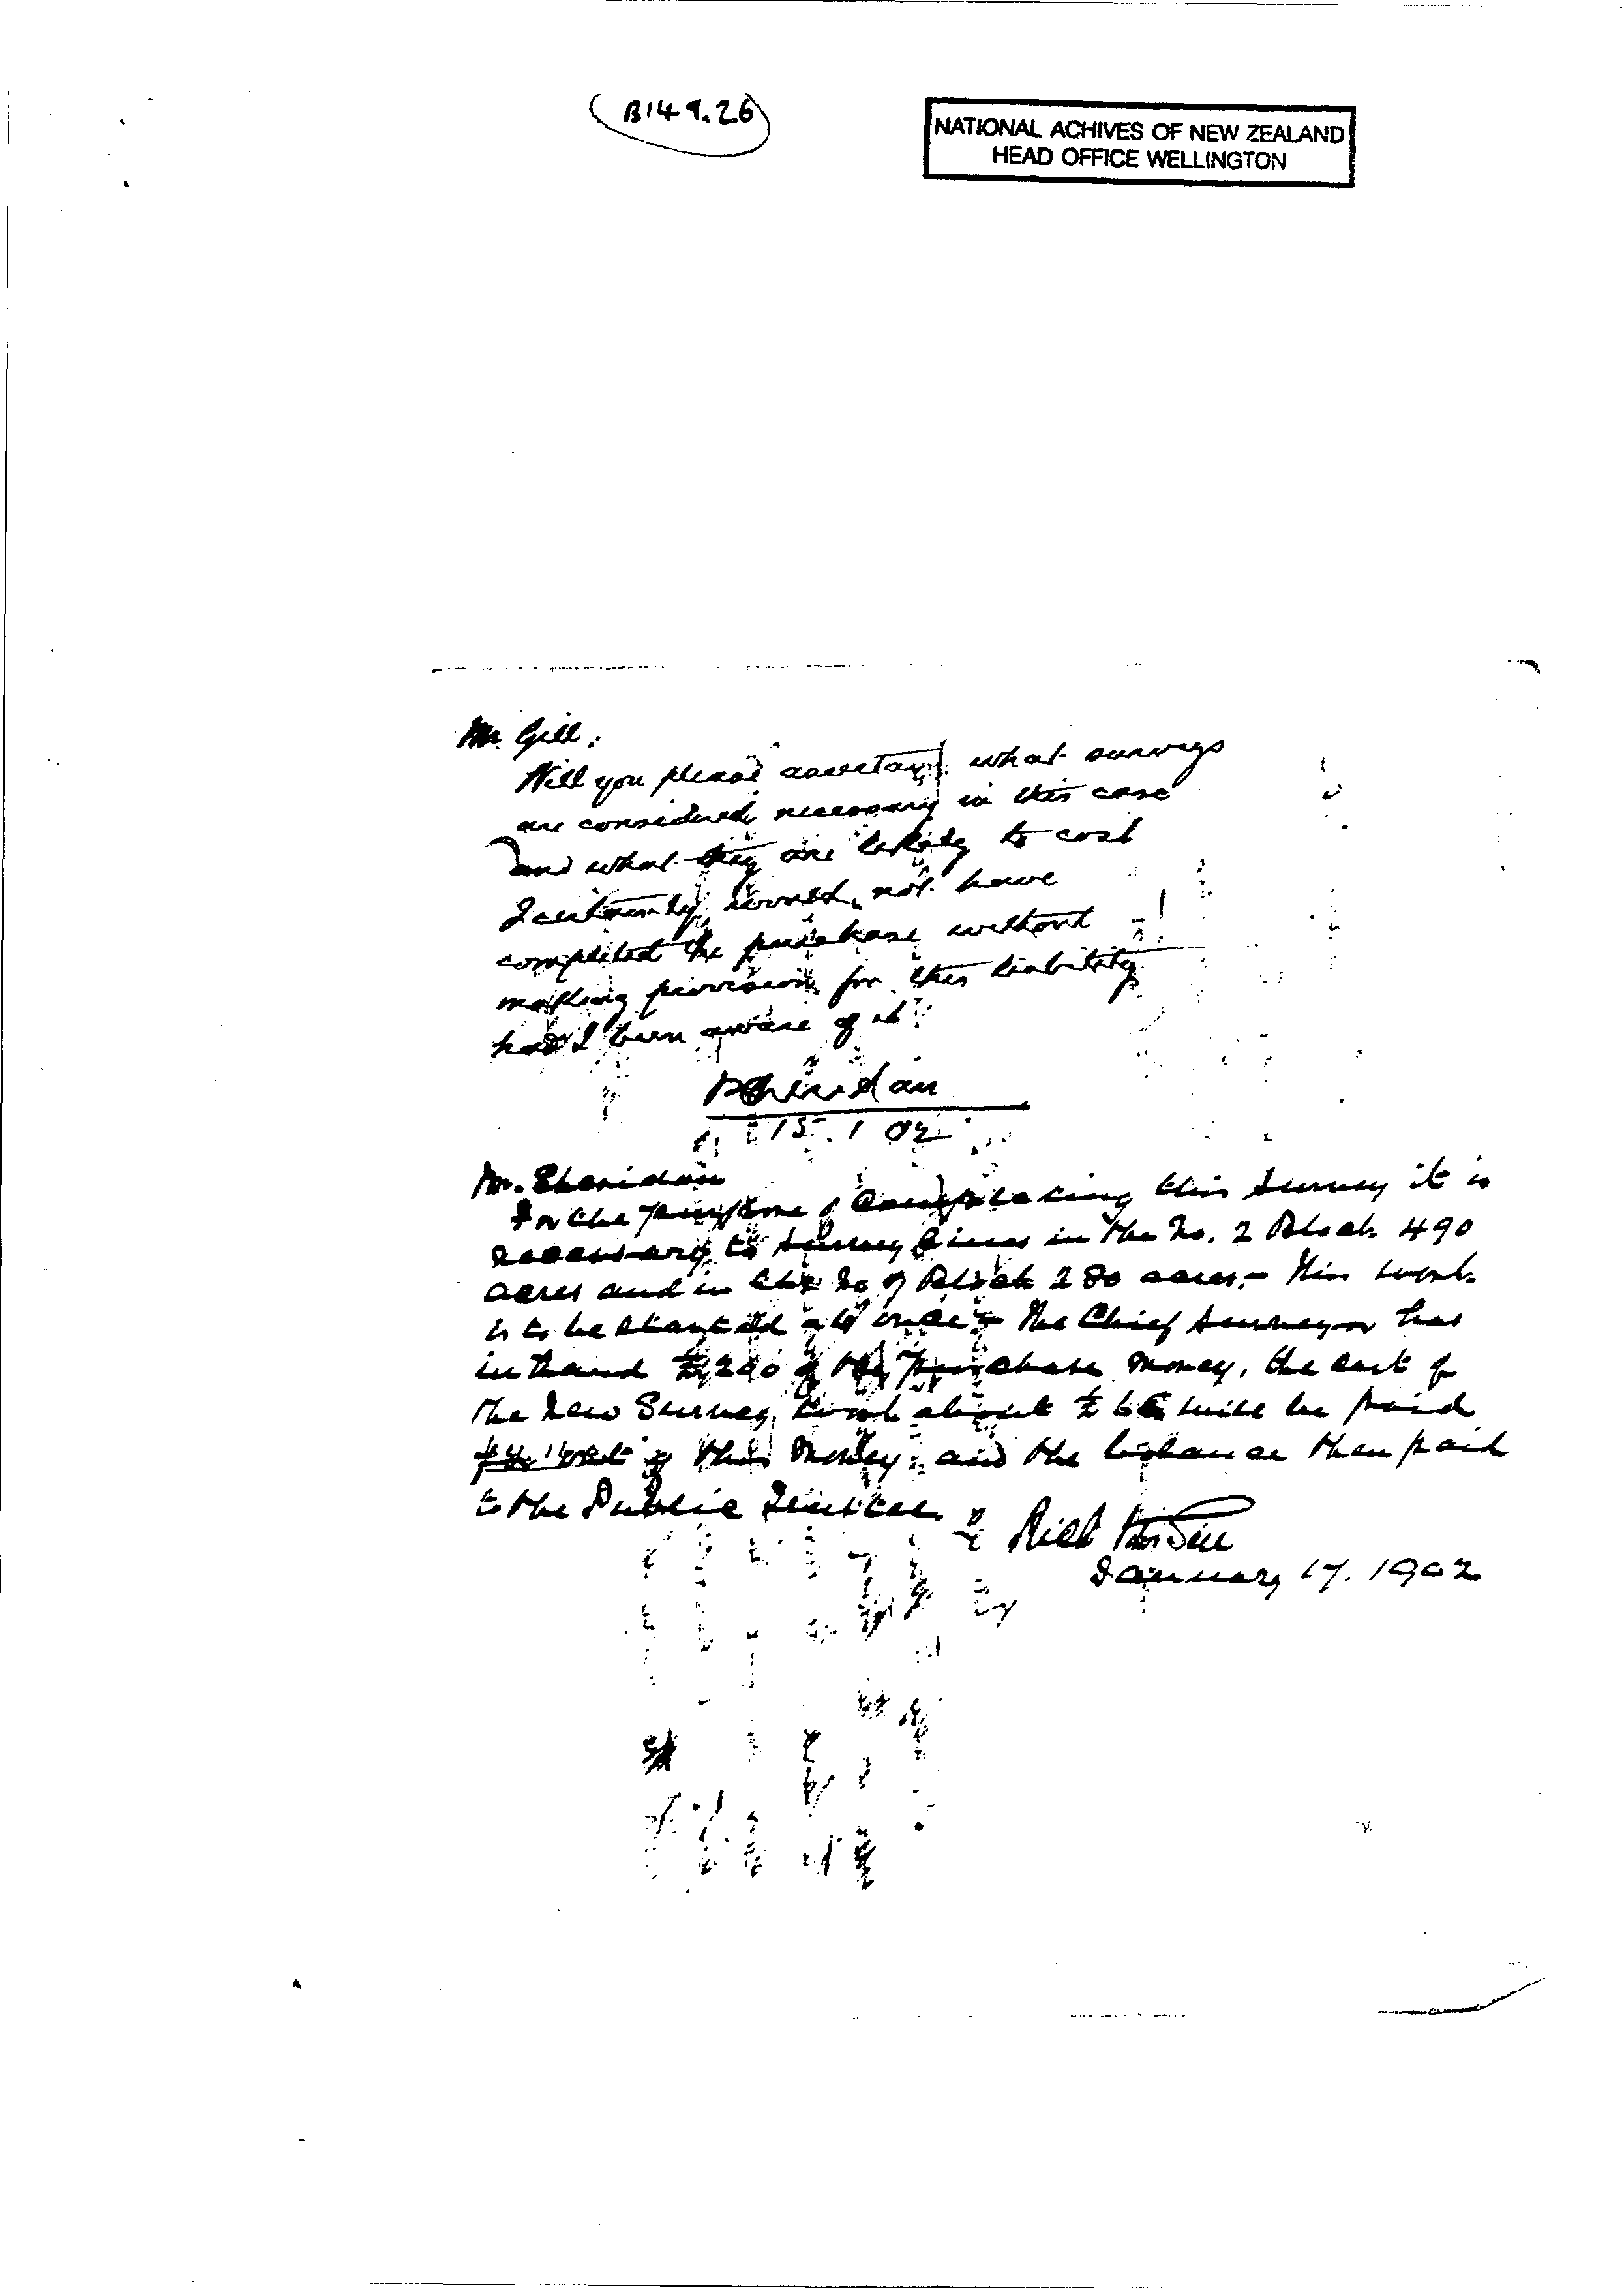 B149.26
NATIONAL ACHIVES OF NEW ZEALAND
HEAD OFFICE WELLINGTON
Mr. Gill:
Will you please ascertain what surveys
are considered necessary in this case
and what they are likely to cost
I certainly would not have
completed the purchase without
making provision for this liability
had I been aware of it
PSheridan
15.1 02
Mr. Sheridan
For the purpose of completing this Survey it is
necessary to survey lines in the No. 2 Block 490
acres and in the No 9 Block 280 acres,- this work
is to be started at once - The Chief Surveyor has
in hand £1,200 of the purchase money, the cost of
the new Survey work about £ will be paid
out of this money, and the balance then paid
to the Public Trustee.
January 17. 1902